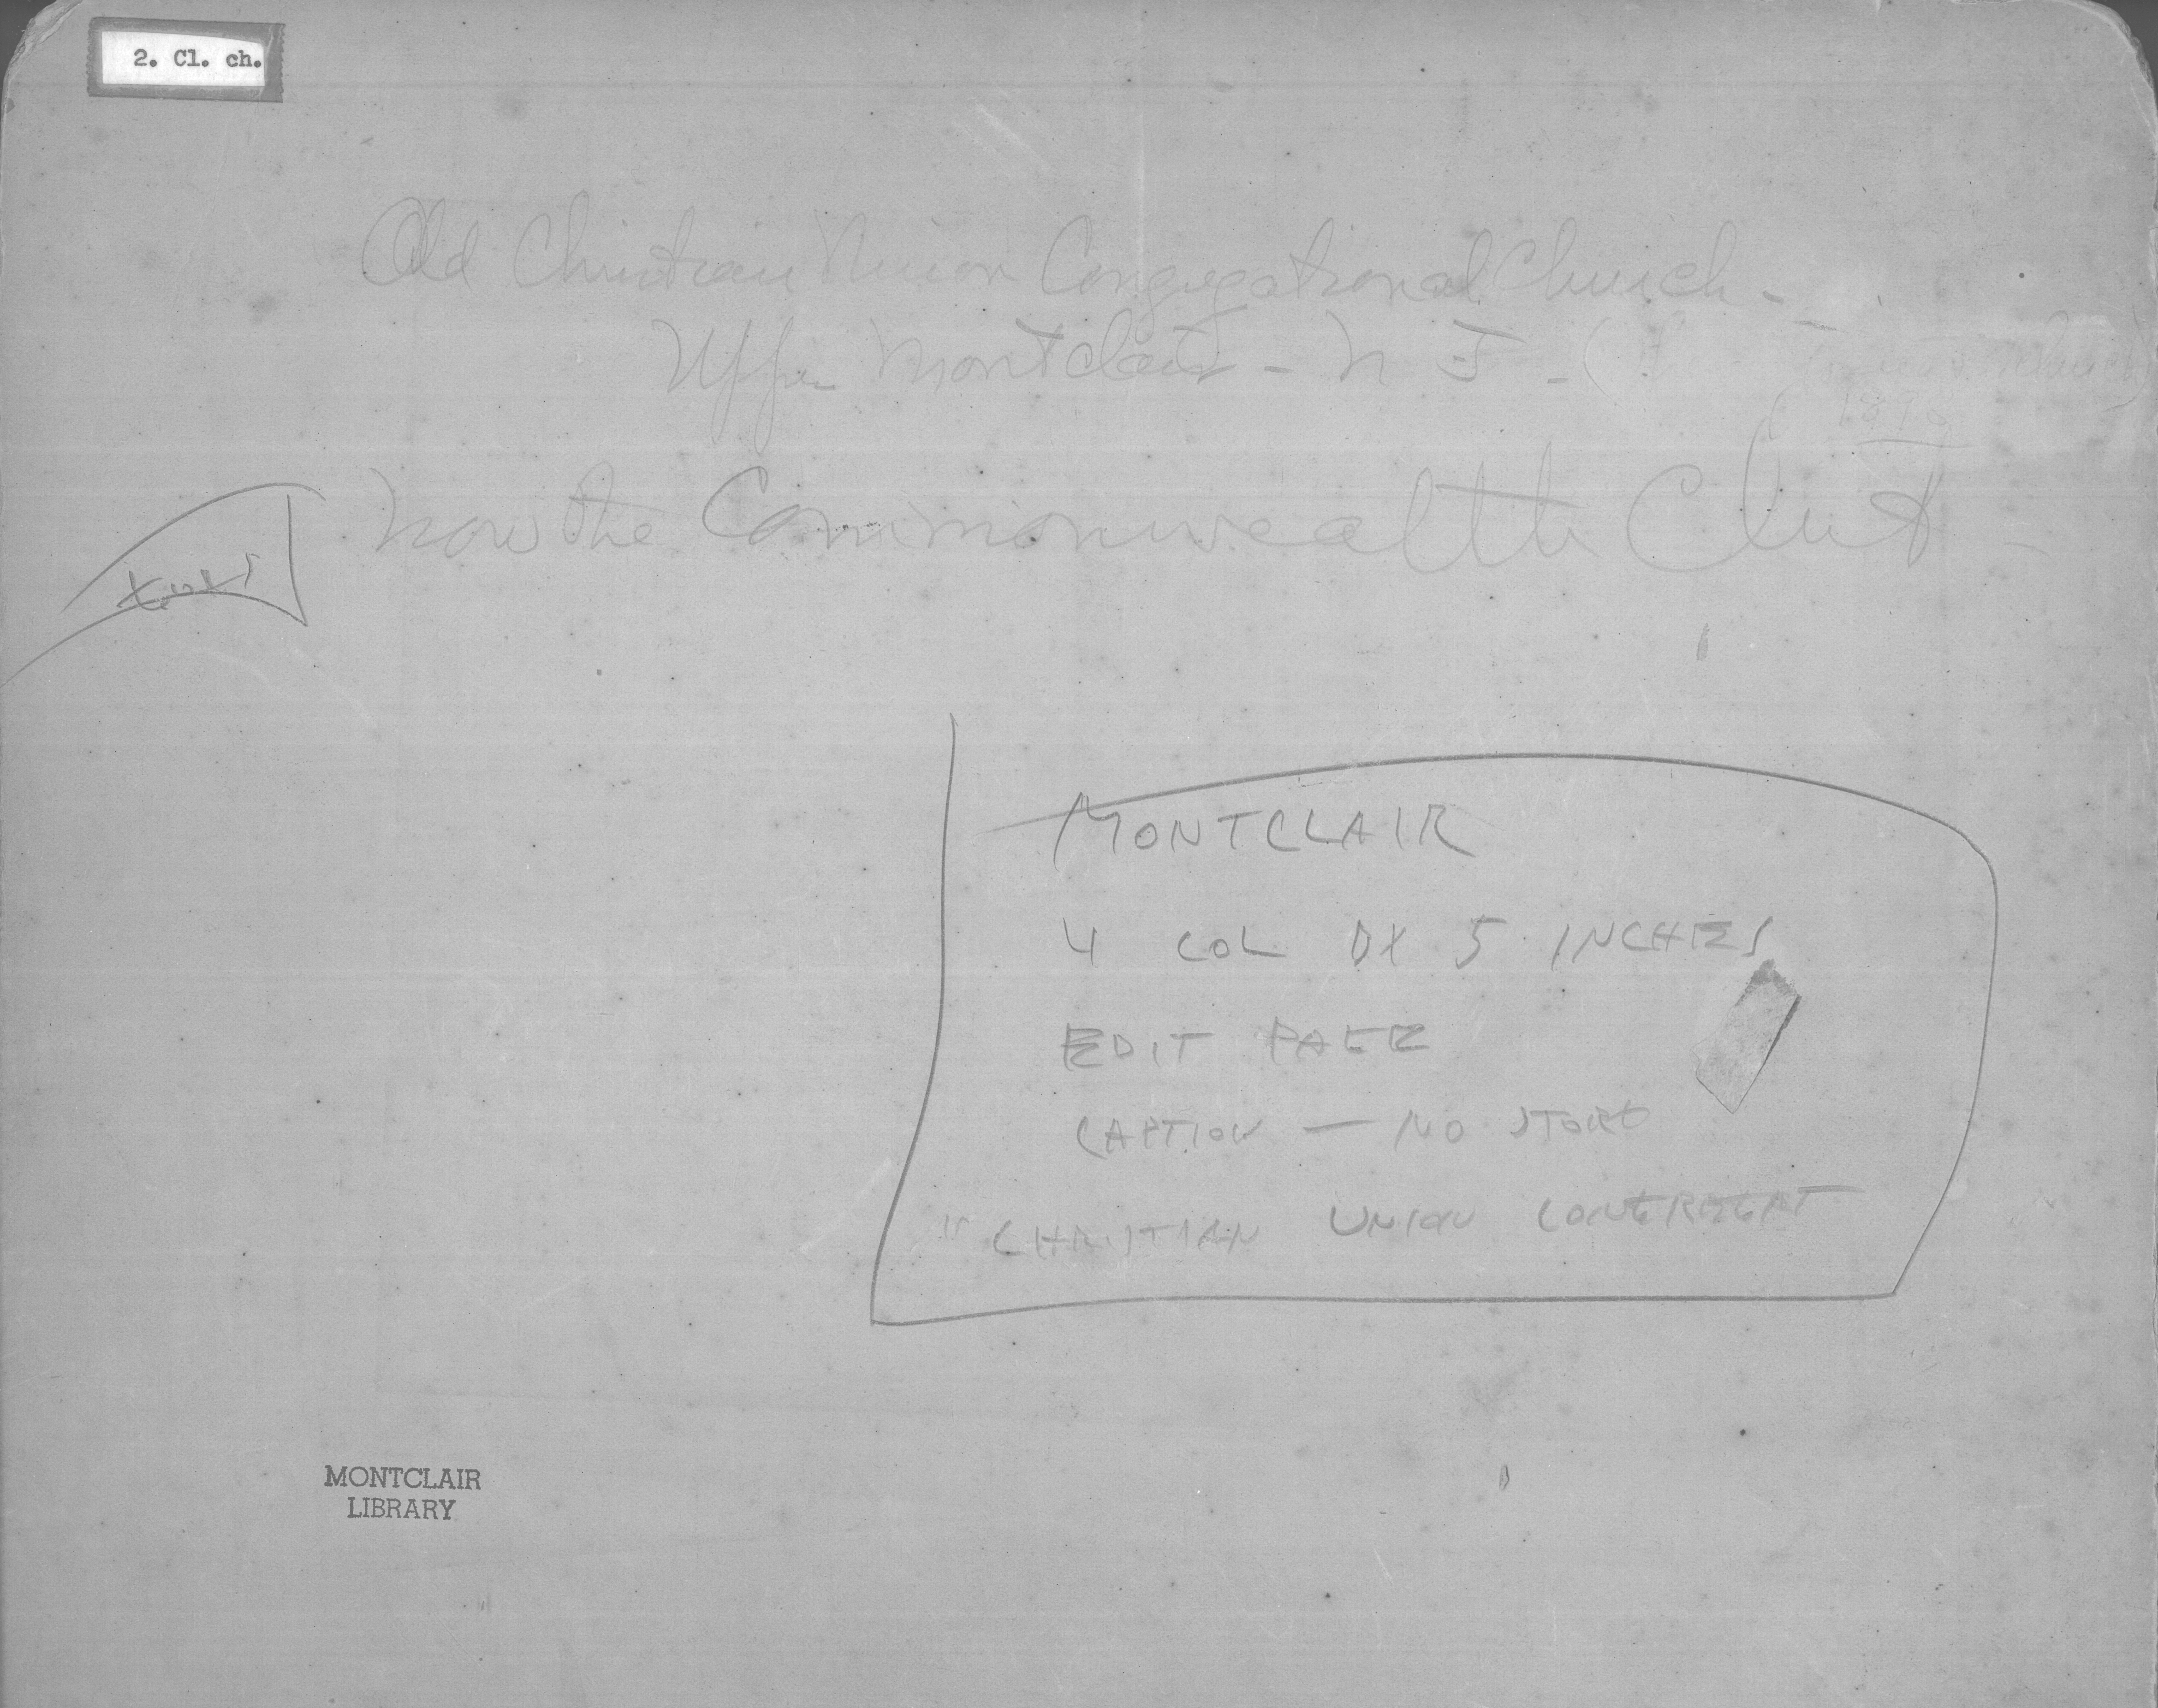 2. Cl. ch.
Old Christian Union Congregational Church -
Upper Montclair - N J - ( Church)
Now the Commonwealth Club
MONTCLAIR
4 COL DX 5 INCHES
EDIT PAGE
CAPTION — NO STORY
"CHRISTIAN UNION
MONTCLAIR
LIBRARY